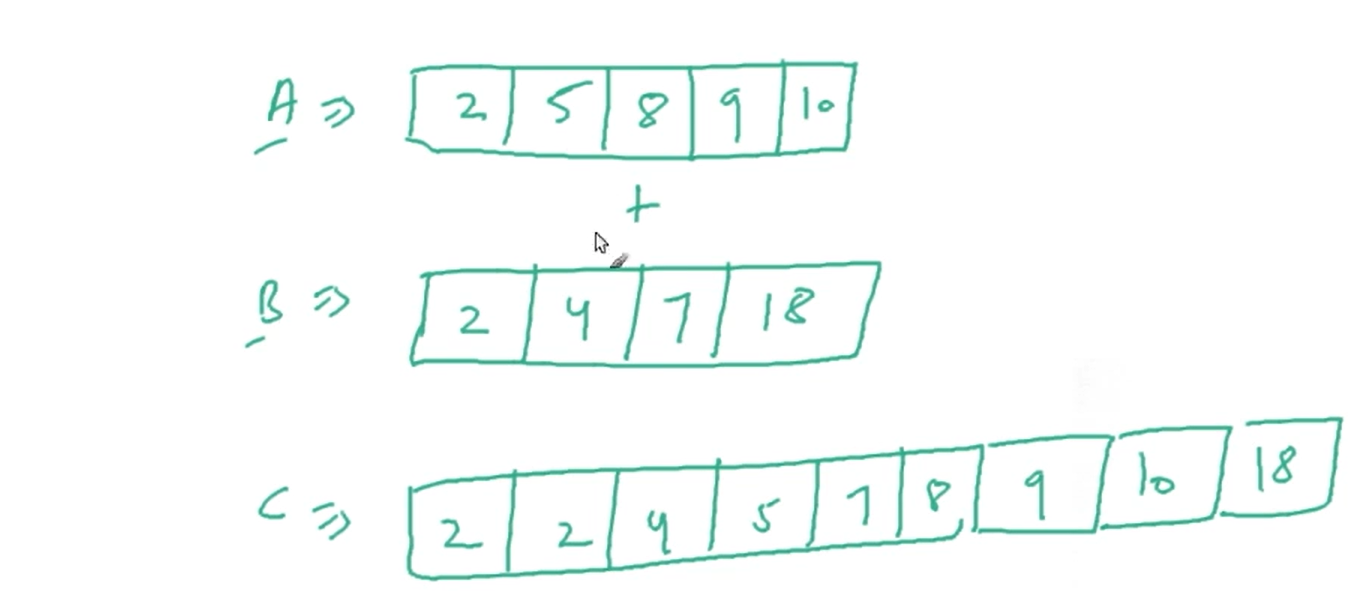 A ⇒ 2 5 8 9 10
+
B ⇒ 2 4 7 18
C ⇒ 2 2 4 5 7 8 9 10 18